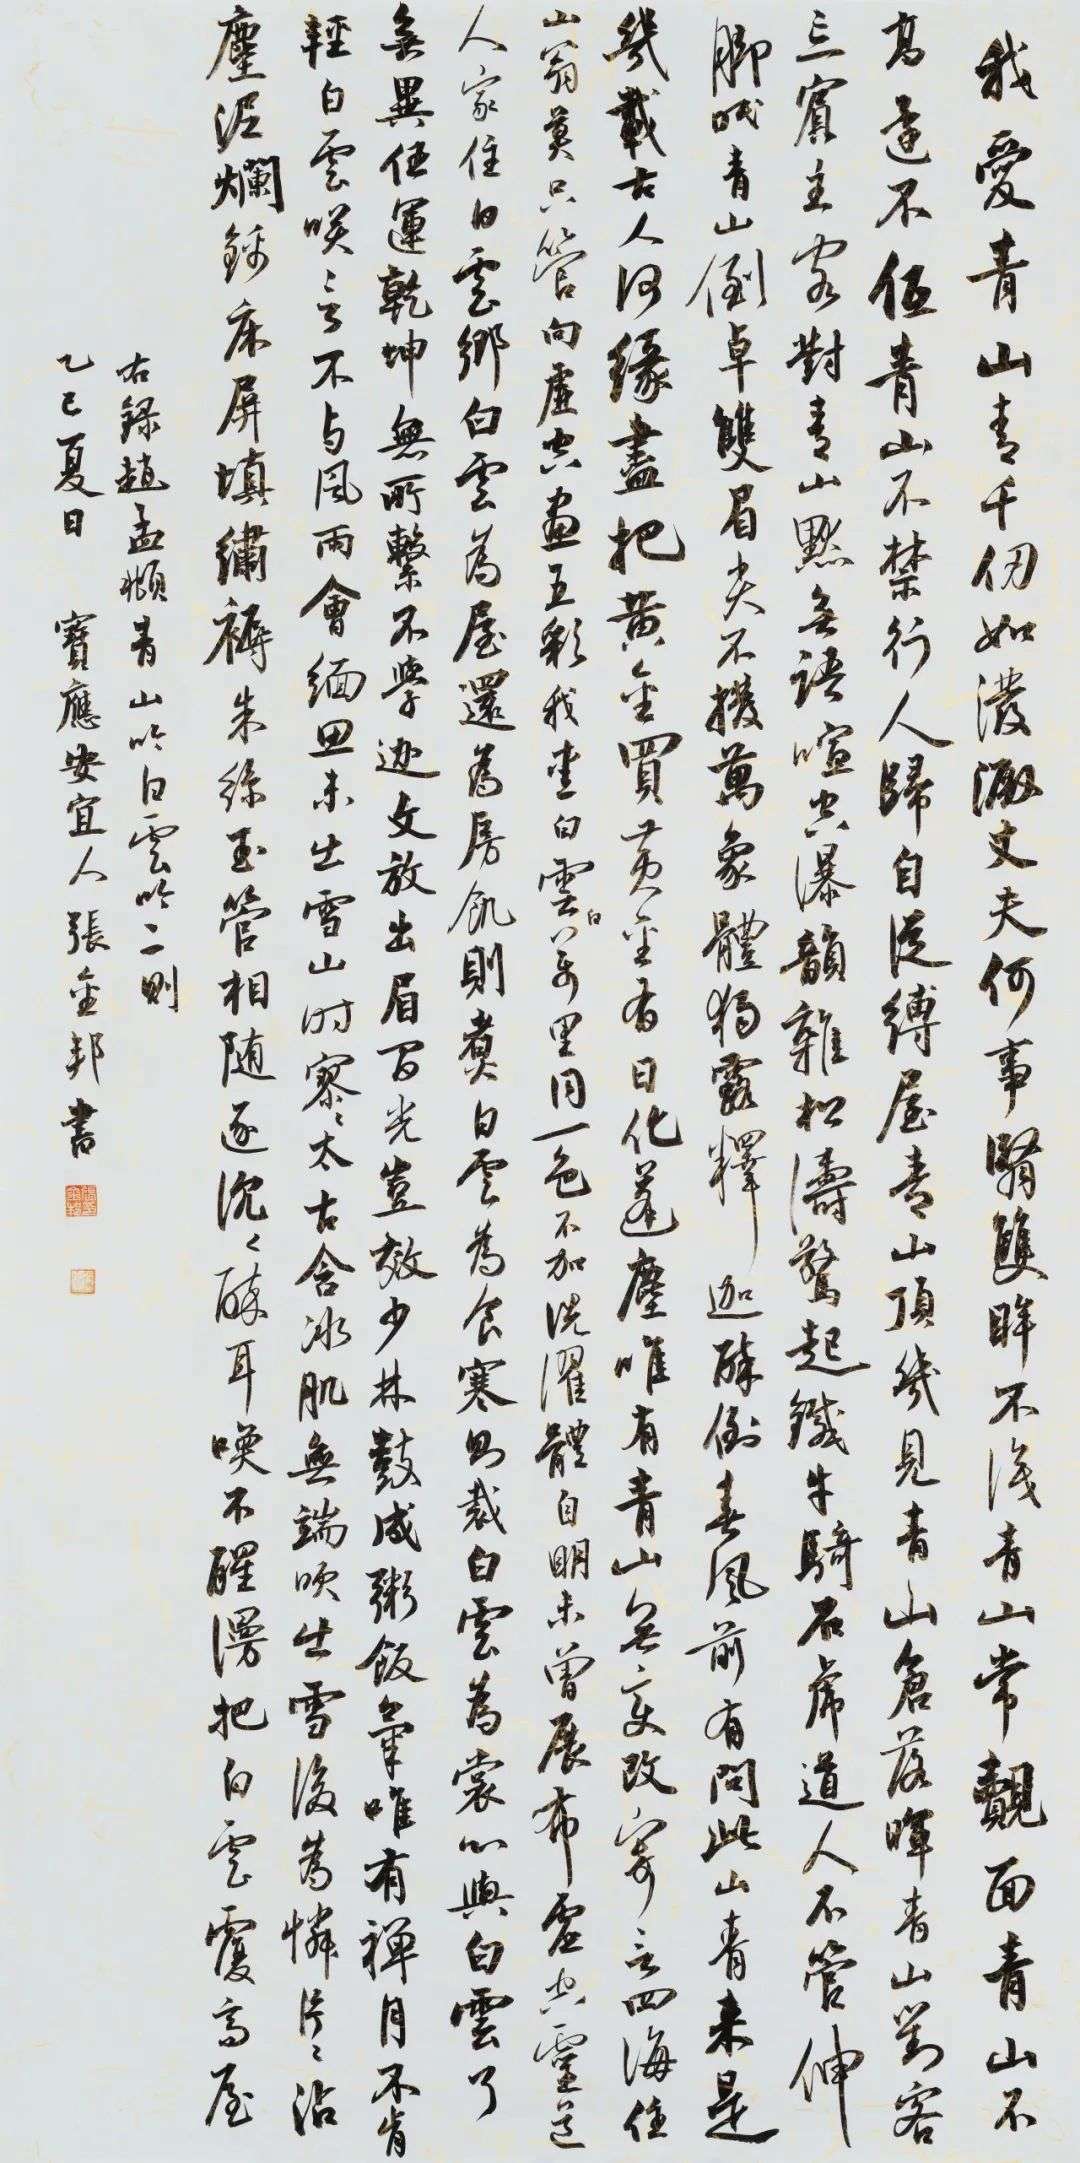 我愛青山青千仞如潑澱丈夫何事瞖雙眸不識青山常覿面青山不
高還不低青山不禁行人歸自從縛屋青山頂幾見青山倉落暉青山對客
三賓主客對青山默無語喧空瀑韻雜松濤驚起鐵牛騎石虎道人不管伸
脚眠青山倒卓雙眉尖不撥萬象體獨露釋迦醉倒春風前有問此山青来是
幾載古人何緣盡把黄金買黄金有日化蓬塵唯有青山無变改寄言四海住
山翁莫只管向虛空畫五彩我愛白雲白萬里同一色不加洗濯體自明未曾展布虛空窒道
人家住白雲鄉白雲為屋還為房飢則煮白雲為食寒則裁白雲為裳心與白雲了
無異任運乾坤無所繫不學迦文放出眉間光豈效少林鼓成粥飯氣唯有禅月不肯
輕白雲唉言不与風雨會緬思未出雪山时寥〻太古含冰肌無端吹出雪後為憐片〻沾
塵泥爛錦床屏填繡褥朱絲玉管相随逐沉〻醉耳喚不醒漫把白雲覆高屋
右錄趙孟頫青山吟白雲吟二則
乙巳夏日 寶應安宜人張金邦書